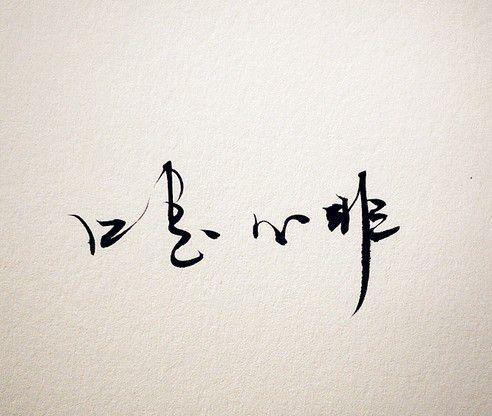 口是心非